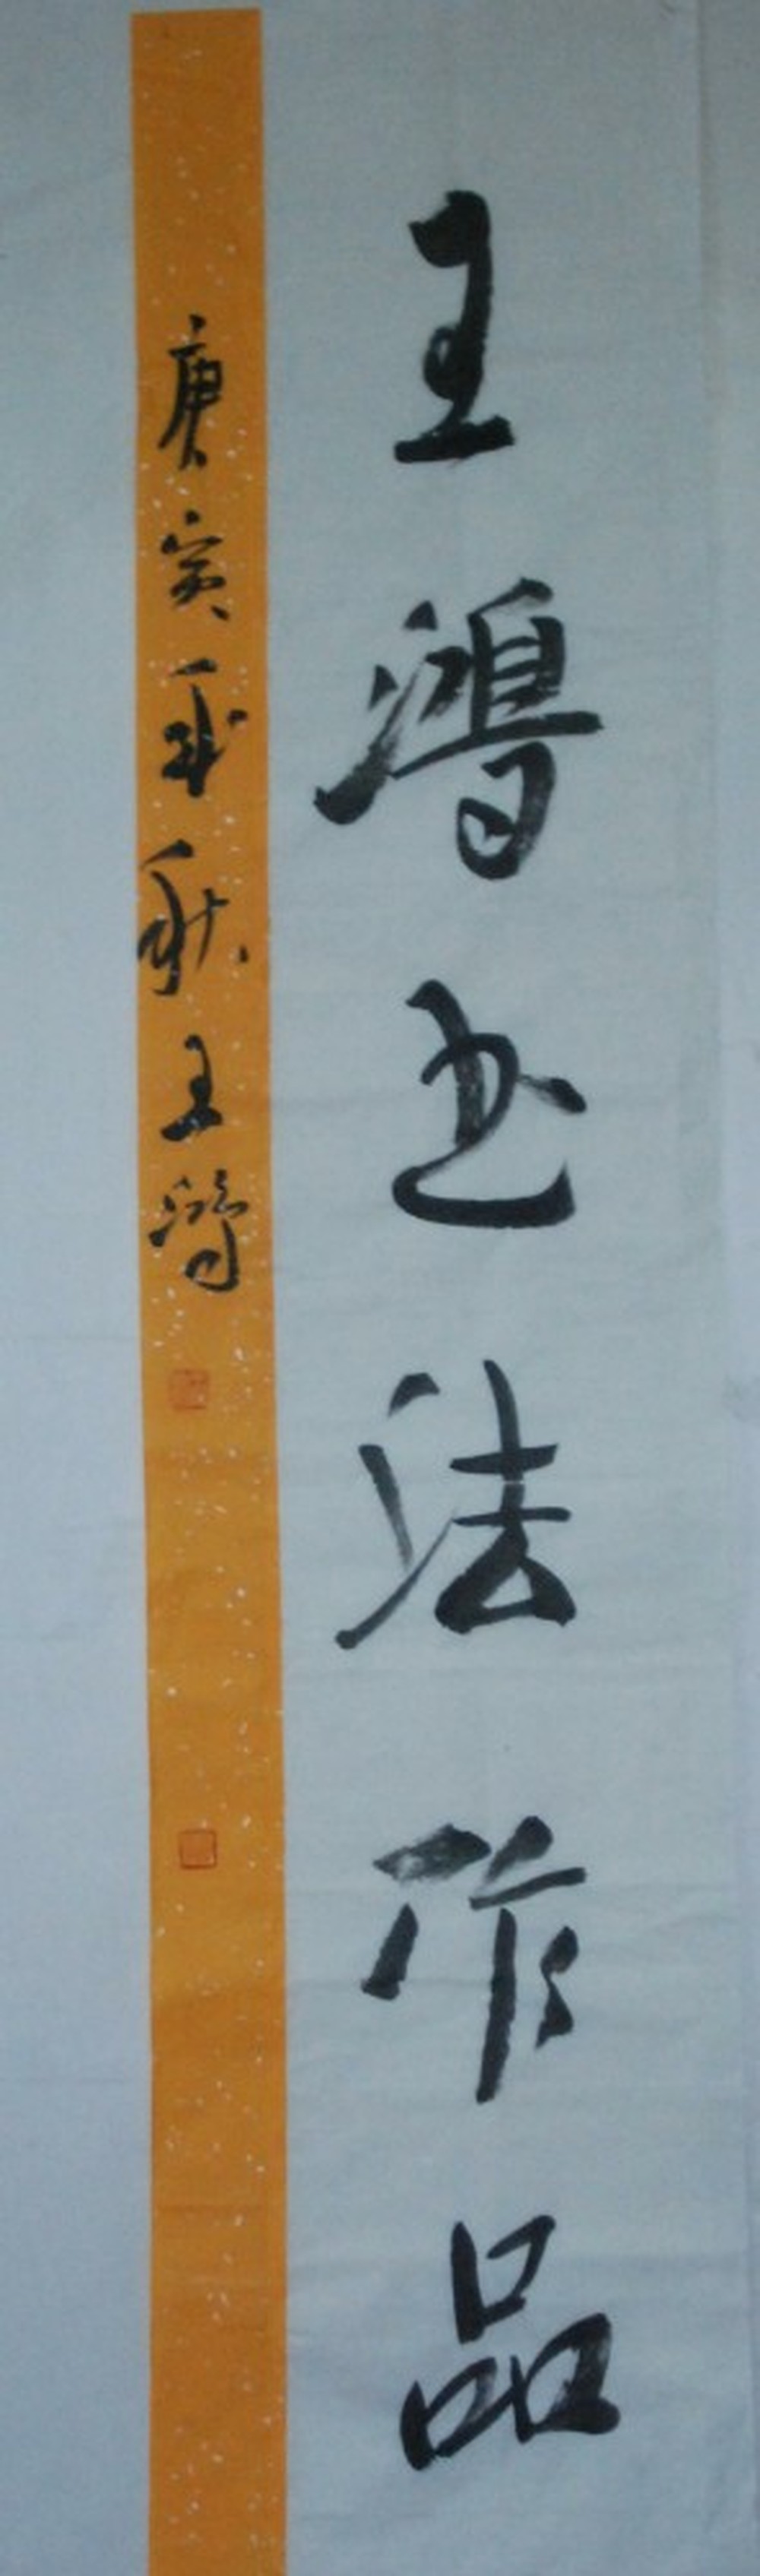 王鴻书法作品
庚寅年秋王鴻